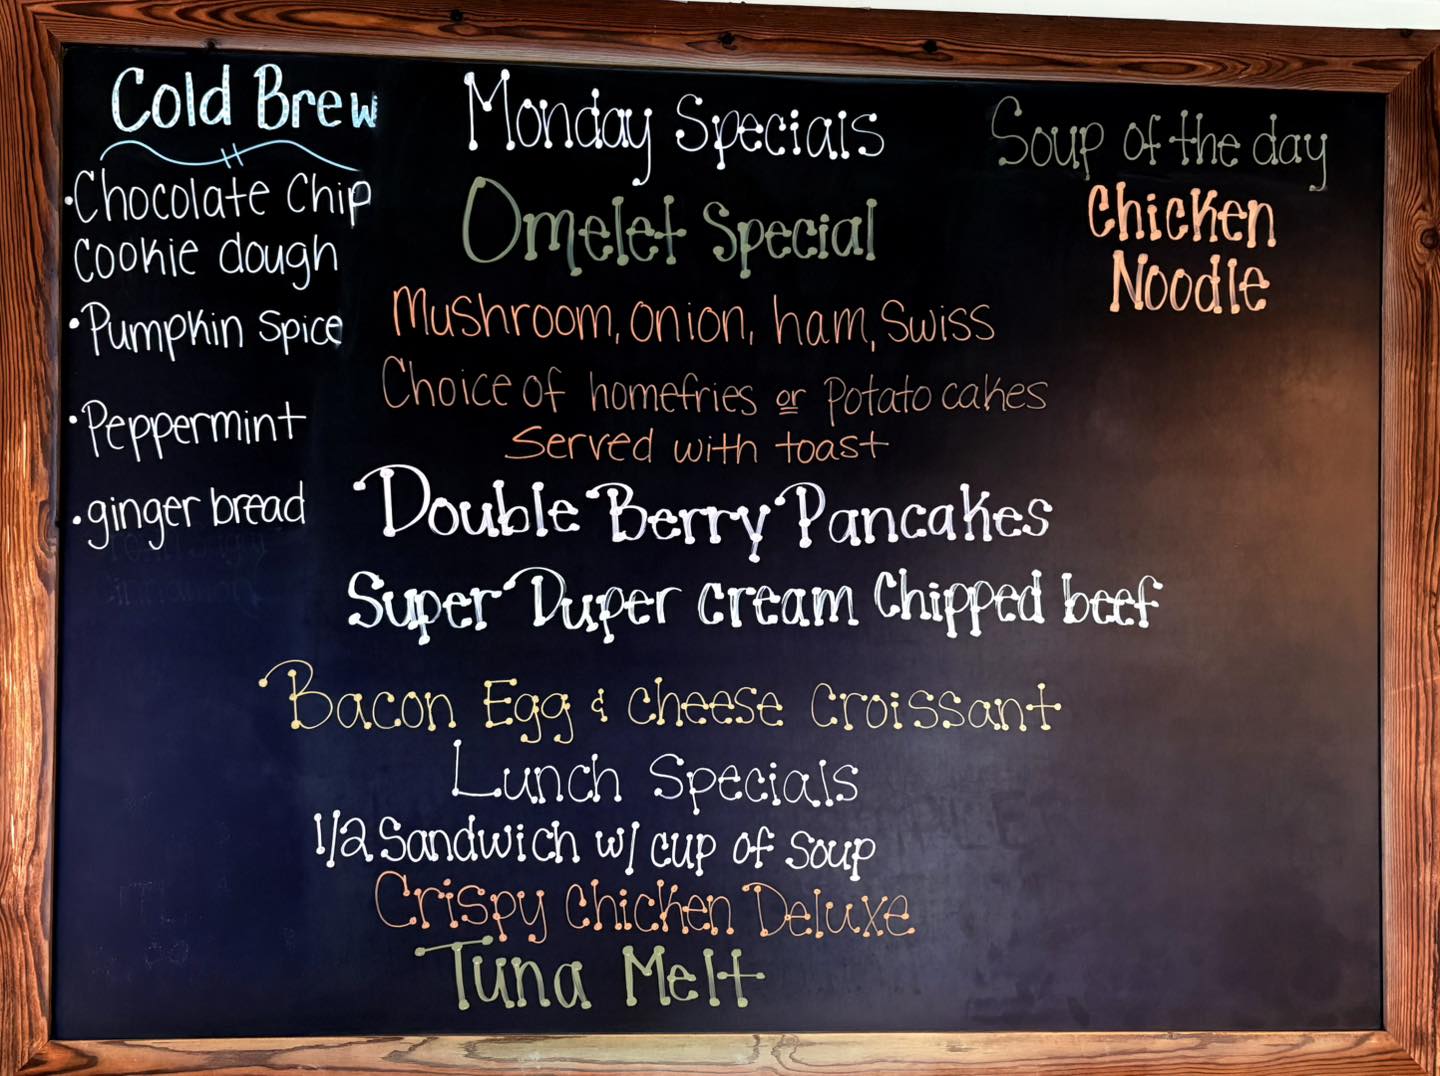 Cold Brew
• Chocolate Chip
Cookie dough
• Pumpkin Spice
• Peppermint
• ginger bread
Monday Specials
Omelet Special
Mushroom, onion, ham, Swiss
Choice of homefries or Potato cakes
Served with toast
Double Berry Pancakes
Super Duper cream Chipped beef
Bacon Egg & Cheese Croissant
Lunch Specials
1/2 Sandwich w/ cup of Soup
Crispy Chicken Deluxe
Tuna Melt
Soup of the day
Chicken
Noodle